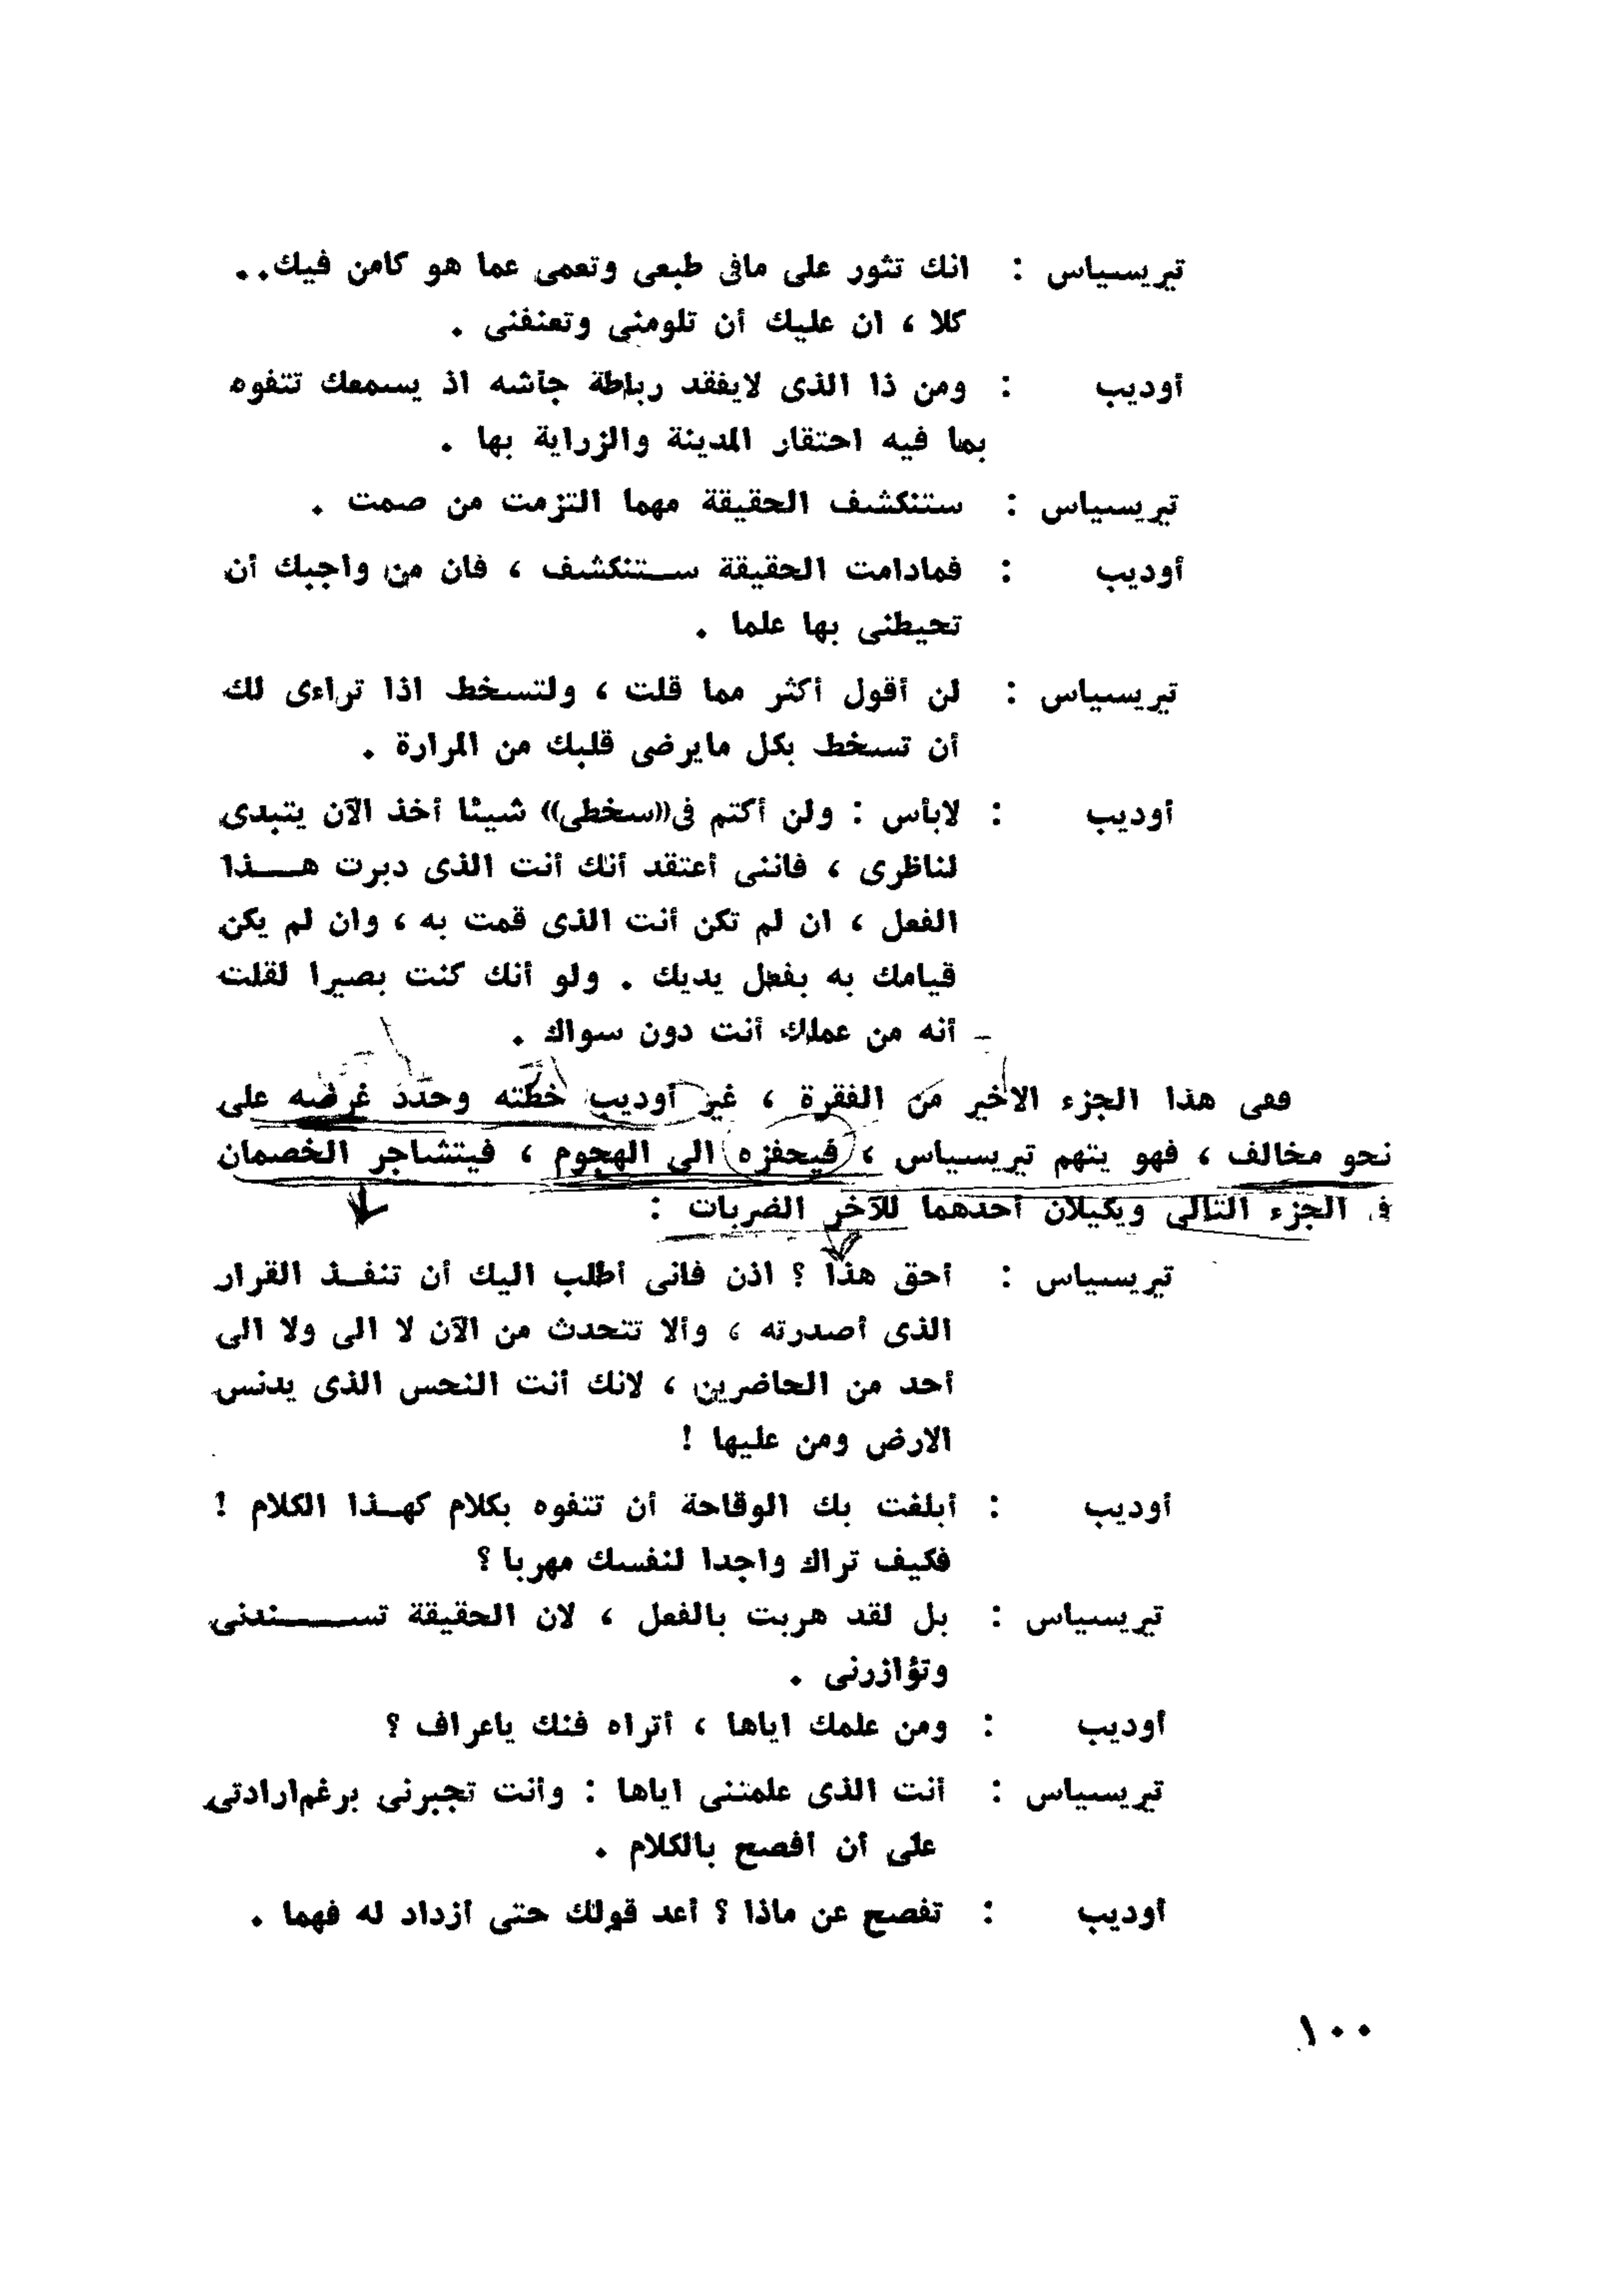 تيريسياس : انك تثور على مافى طبعى وتعمى عما هو كامن فيك..
كلا ، ان عليك أن تلومنى وتعنفنى .
أوديب : ومن ذا الذى لايفقد رباطة جأشه اذ يسمعك تتفوه
بما فيه احتقار المدينة والزراية بها .
تيريسياس : ستنكشف الحقيقة مهما التزمت من صمت .
أوديب : فمادامت الحقيقة ستنكشف ، فان من واجبك أن
تحيطنى بها علما .
تيريسياس : لن أقول أكثر مما قلت ، ولتسخط اذا تراءى لك
أن تسخط بكل مايرضى قلبك من المرارة .
أوديب : لابأس : ولن أكتم فى «سخطى» شيئا أخذ الآن يتبدى
لناظرى ، فاننى أعتقد أنك أنت الذى دبرت هذا
الفعل ، ان لم تكن أنت الذى قمت به ، وان لم يكن
قيامك به بفعل يديك . ولو أنك كنت بصيرا لقلت
أنه من عملك أنت دون سواك .
ففى هذا الجزء الاخير من الفقرة ، غير أوديب خطته وحدد غرضه على
نحو مخالف ، فهو يتهم تيريسياس ، فيحفزه الى الهجوم ، فيتشاجر الخصمان
فى الجزء التالى ويكيلان أحدهما للآخر الضربات :
تيريسياس : أحق هذا ؟ اذن فانى أطلب اليك أن تنفذ القرار
الذى أصدرته ، وألا تتحدث من الآن لا الى ولا الى
أحد من الحاضرين ، لانك أنت النحس الذى يدنس
الارض ومن عليها !
أوديب : أبلغت بك الوقاحة أن تتفوه بكلام كهذا الكلام !
فكيف تراك واجدا لنفسك مهربا ؟
تيريسياس : بل لقد هربت بالفعل ، لان الحقيقة تسندنى
وتؤازرنى .
أوديب : ومن علمك اياها ، أتراه فنك ياعراف ؟
تيريسياس : أنت الذى علمتنى اياها : وأنت تجبرنى برغم ارادتى
على أن أفصح بالكلام .
أوديب : تفصح عن ماذا ؟ أعد قولك حتى أزداد له فهما .
١٠٠